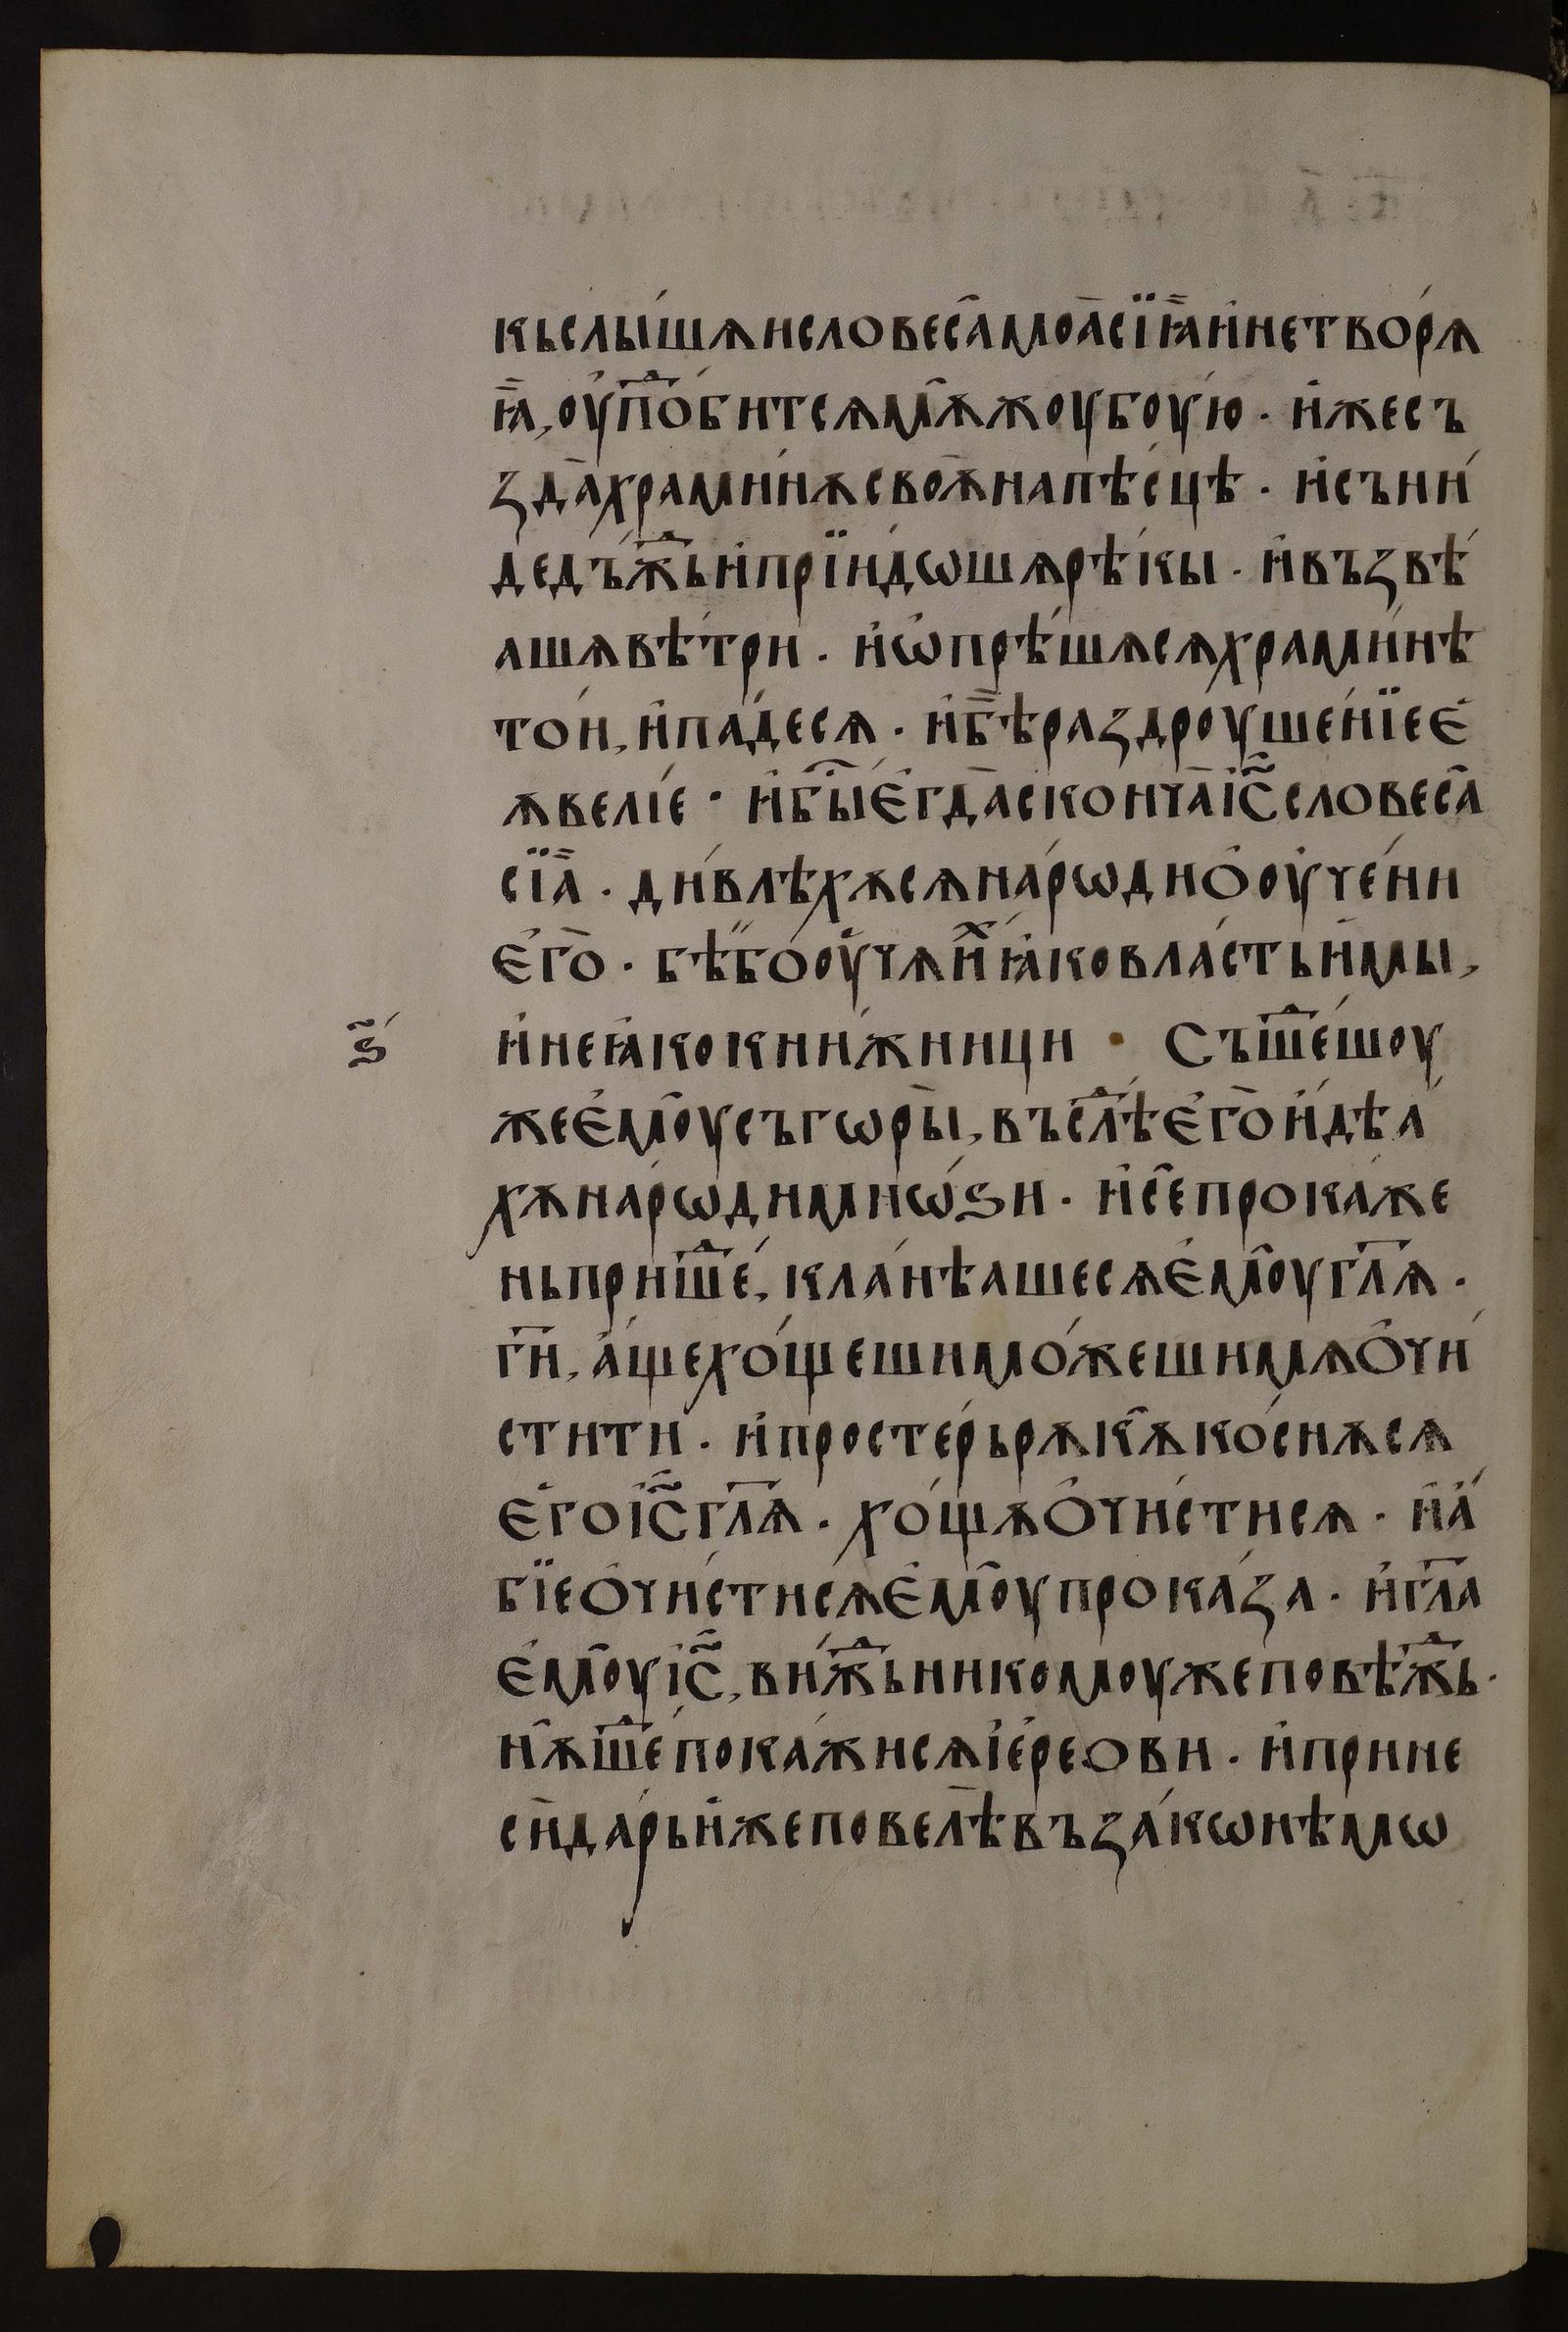 кьслы́шѧ и словеса̑ моа̑ сїꙗ҄ и҆ не творѧ́
ꙗ҄, оу҆по́ⷣбитсѧ мѫ̑жоу боу́ю · и҆же съ
зда̀ хра́минѫ своѫ̀ на пѣ́сцѣ · и҆ съни́
де дъ́жⷣь и҆ прїидѡшѧ рѣ́кы · и҆ възвѣ́
ашѧ вѣ́три · и҆ ѡ҆прѣ́шѧсѧ хра́минѣ
то́и, и҆ па́десѧ · и҆ бѣ̀ раздроуше́нїе є҆
ѧ ве́лїе · и҆ бы́ⷭ є҆гда̀ сконча̀ і҆с҃ словеса̑
сїа҄ · ди́влѣхѫсѧ наро́ди ѡ҆ оу҆че́ни
є҆го̀ · бѣ̀ бо оу҆чѧ и҆ⷯ ꙗ҆ко вла́сть и҆мы,
и҆ не ꙗ҆ко кни́жници · Съшеⷣ́шоу
ѕ҃	же є҆моу̑ съ гѡры̀, въслѣⷣ́ є҆го̀ и҆дѣа́
хѫ наро́ди мнѡ́ѕи · и҆ се̑ прокаже
нь прише́ⷣ, кла́нѣашесѧ є҆моу̑ гл҃ѧ ·
ги҃, а҆́ще хо́щеши мо́жеши мѧ ѻ҆чи́
стити · и҆ просте́рь рѫкѫ̑ ко́снѫсѧ
є҆го і҆с҃ гл҃ѧ · хо́щѫ ѻ҆чи́стисѧ · и҆ а҆́
бїе ѻ҆чи́стисѧ є҆моу̑ прока́за · и҆ гл҃а
є҆моу̑ і҆с҃, ви́жⷣь никомоуже повѣ́жⷣь ·
нѫ̑ шеⷣ́ пока́жисѧ і҆е҆ре́ови · и҆ прине
сѝ да́рь и҆же повелѣ̀ въ зако́нѣ мѡ